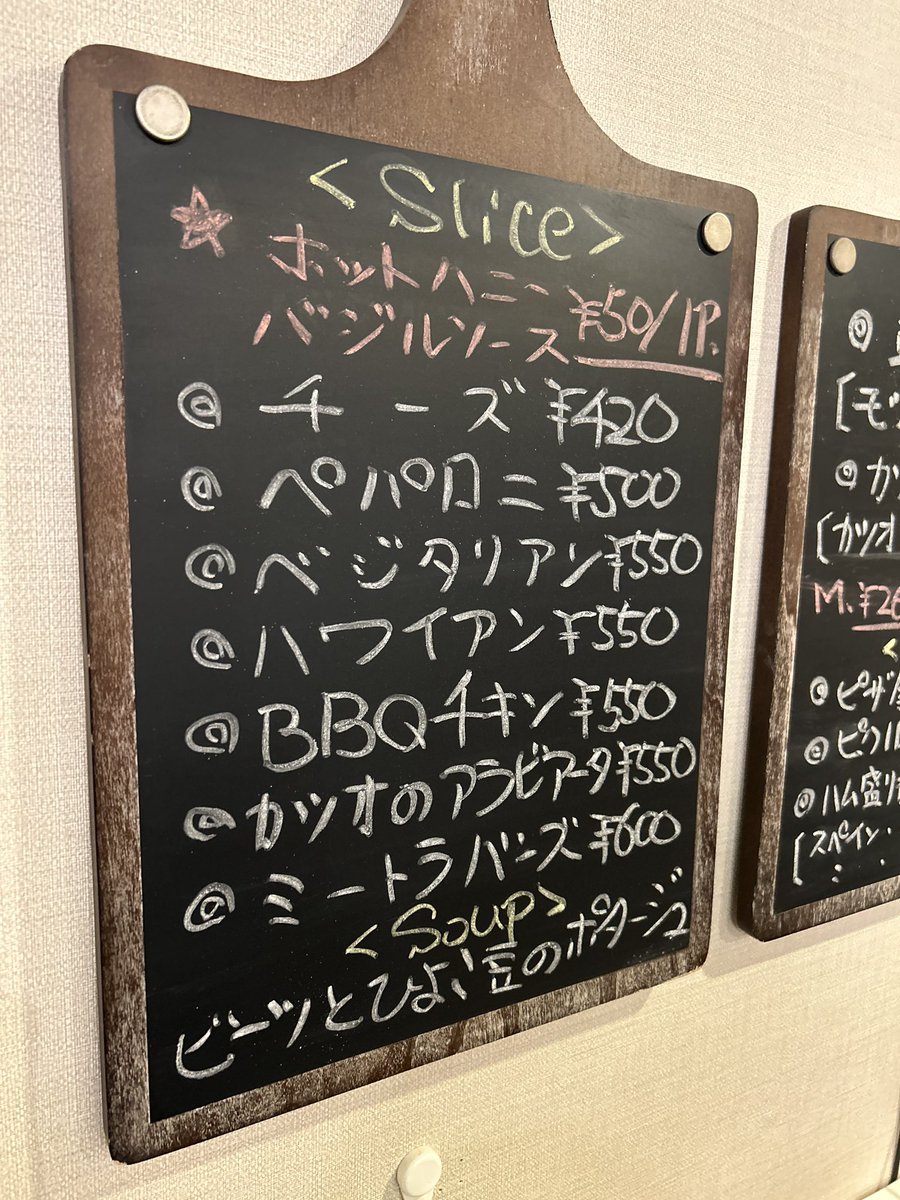 <Slice>
☆ ホットハニー
バジルソース ¥50/1P.
◎ チーズ ¥420
◎ ペパロニ ¥500
◎ ベジタリアン ¥550
◎ ハワイアン ¥550
◎ BBQチキン ¥550
◎ カツオのアラビアータ ¥550
◎ ミートラバーズ ¥600
<Soup>
ビーツとひよこ豆のポタージュ
◎
[モッ
◎ カッ
[カツオ
M.¥26
<
◎ ピザ
◎ ピクル
◎ ハム盛り
[スペイン・